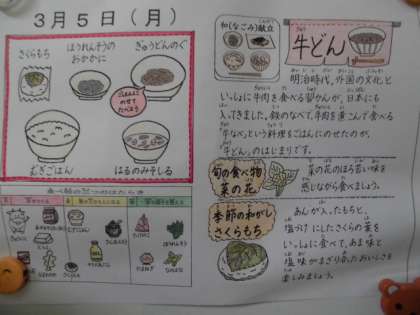 3月5日(月)
さくらもち
ほうれんそうの
おかかに
ぎゅうどんのぐ
ごはんに
のせて
たべよう
むぎごはん
はるのみそしる
和(なごみ)献立
牛どん
明治時代、外国の文化と
いっしょに牛肉を食べる習かんが、日本にも
入ってきました。鉄のなべで、牛肉を煮こんで食べる
「牛なべ」という料理をごはんにのせたのが、
「牛どん」のはじまりです。
旬の食べ物
菜の花
菜の花のほろ苦い味を
感じながら食べましょう。
季節の和がし
さくらもち
あんが入ったもちと、
塩づけにしたさくらの葉を
いっしょに食べて、あま味と
塩味がまざり合ったおいしさを
楽しみましょう。